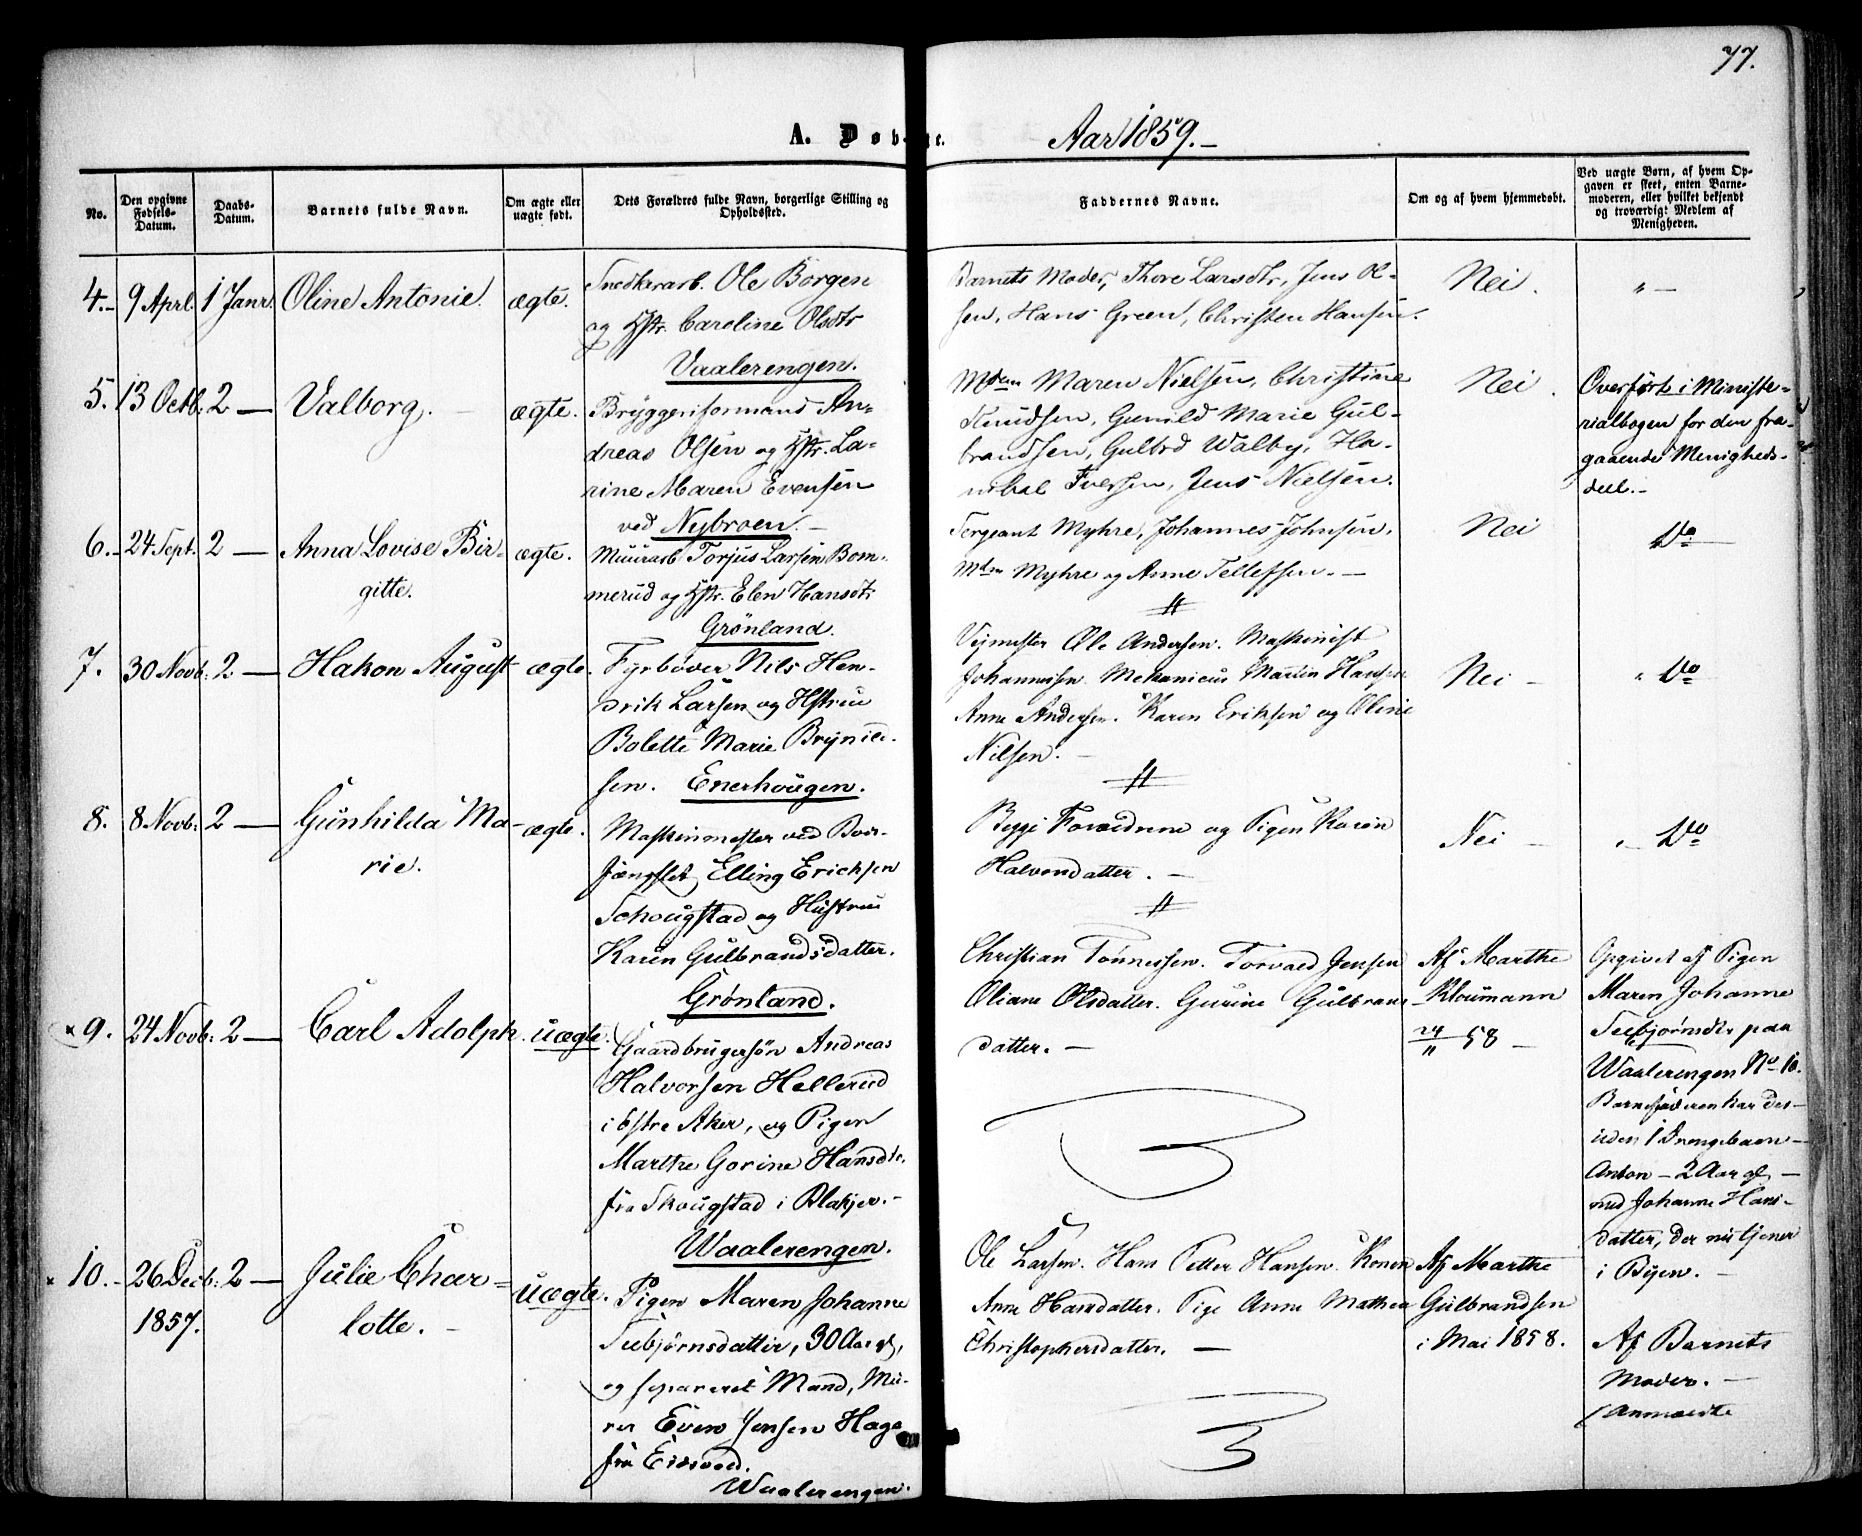 77.
A. Døb-te. Aar 1859.-
No.
Den opgivne Fødsels-Datum.
Daabs-Datum.
Barnets fulde Navn.
Om ægte eller uægte født.
Dets Forældres fulde Navn, borgerlige Stilling og Opholdssted.
Faddernes Navne.
Om og af hvem hjemmedøbt.
Ved uægte Børn, af hvem Op-
gaven er skeet, enten Barne-
moderen, eller hvilket bekjendt
og troværdigt Medlem af
Menigheden.
4.- 9 Aprl. 1 Janr. Oline Antonie. ægte.
Snedkerarb. Ole Borgen
og Hstr. Caroline Olsdtr
Vaalerengen.
Barnets Moder, Thore Larsdtr, Jens Ol-
sen, Hans Green, Christen Hansen.
Nei.
" —
5. 13 Octb. 2 — Valborg. ægte.
Bryggeriformand An-
dreas Olsen og Hstr. La-
rine Maren Evensen
ved Nybroen. -
Mdm Maren Nielsen, Christine
Knudsen, Gunild Marie Gul-
brandsen, Gulbrd Walby, Ha-
nibal Iversen, Jens Nielsen.
Nei.
Overført i Ministe-
rialbogen for den fra-
gaaende Menigheds-
deel.-
6.- 24 Sept. 2 — Anna Lovise Bir-
gitte.
ægte.
Muurarb Torjus Larsen Bom-
merud og Hstr. Elen Hansdtr
Grønland.
Sergeant Myhre, Johannes Johnsen,
Mdm Myhre og Anne Tellefsen. —
Nei
Do
7. 30 Novb. 2 — Hakon August ægte.
Fyrbøder Nils Hen-
drik Larsen og Hstrue
Bolette Marie Brynild-
sen. Enerhougen.
Vejmester Ole Andersen. Maskinist
Johannessen. Mekanicus Martin Hansen
Anne Andersen. Karen Eriksen og Oline
Nilsen. -
Nei -
" Do
8. 8 Novb: 2 — Gunhilda Ma-
rie.
ægte.
Maskinmester ved Bod-
fængslet, Elling Ericksen
Schougstad og Hustrue
Karen Gulbrandsdatter.
Grønland.
Begge Forældrene og Pigen Karen
Halvorsdatter. —
Nei -
" Do
x 9. 24 Novb: 2 — Carl Adolph. uægte.
Gaardbrugersøn Andreas
Halvorsen Hellerud
i Østre Aker, og Pigen
Marthe Gorine Hansdtr.
fra Skougstad i Blakjer.-
Waalerengen.
Christian Tønnessen. Torvald Jensen
Oliane Olsdatter. Gurine Gulbrans-
datter. —
Af Marthe
Kloumann
24/11 58 -
Opgivet af Pigen
Maren Johanne
Teebjørnsdtr paa
Waalerengen No 10.
Barnefaderen har des-
uden 1 Drengebarn -
Anton - 2 Aar gl, -
med Johanne Hans-
datter, der nu tjener
i Byen. -
x 10.- 26 Decb: 2 — Julie Char-
1857. lotte. -
uægte.
Pigen Maren Johanne
Teebjørnsdatter, 30 Aar gl,
og separeret Mand, Mu-
rer Even Jensen Hage
fra Eidsvold.
Waalerengen.
Ole Larsen. Hans Petter Hansen. Konen
Anne Hansdatter. Pige Anne Mathea
Christophersdatter. —
Af Marthe
Gulbrandsen
i Mai 1858.
Af Barnets
Moder. -
Anmeldte